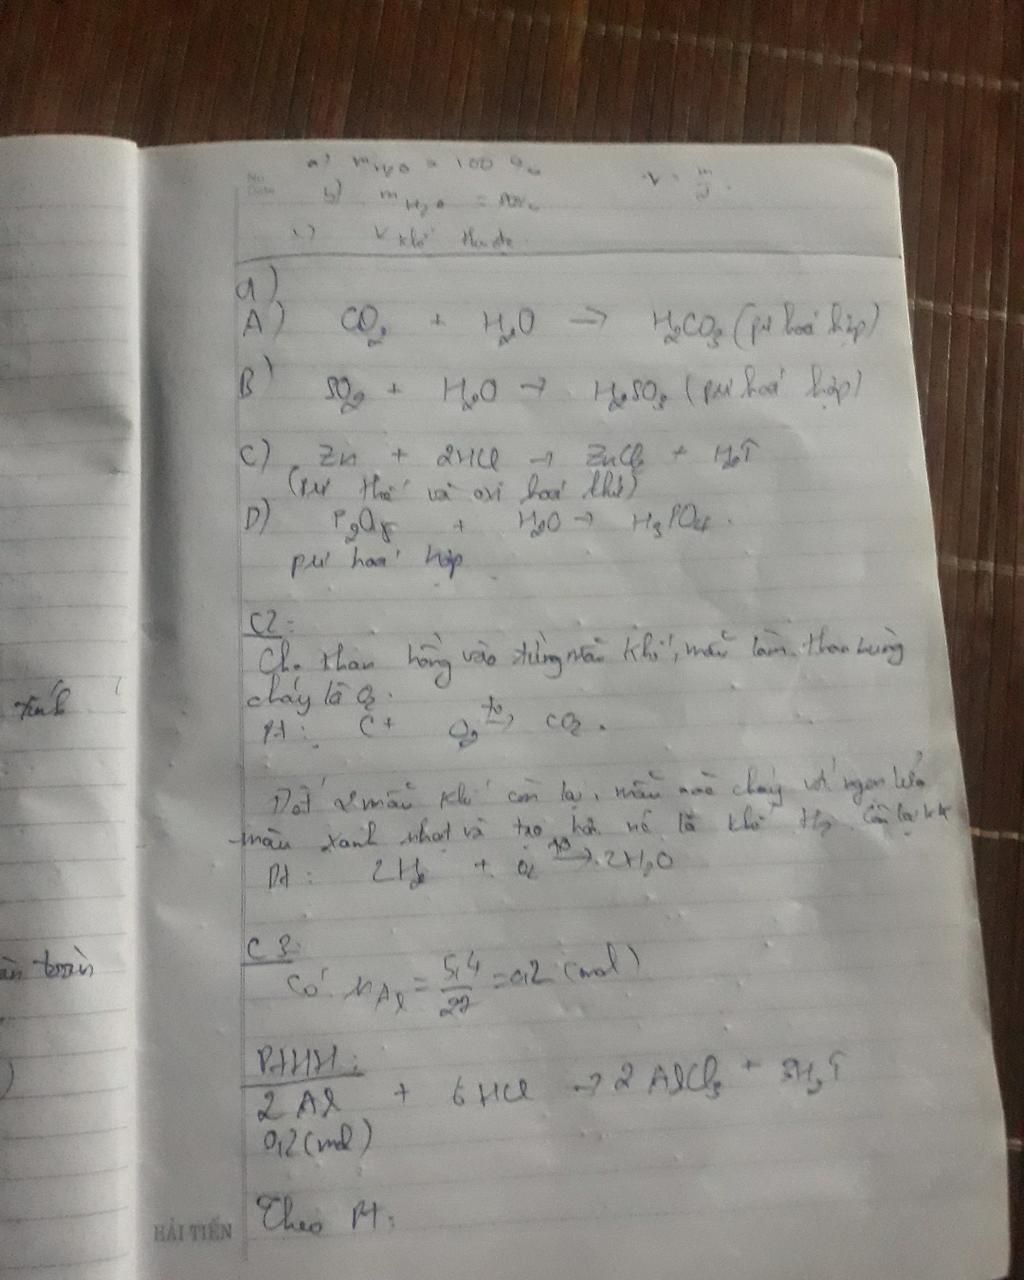 a) mH2O = 100 g
V = m
b) mH2O =
V khí
a)
A) CO2 + H2O → H2CO3 (pư hoá hợp)
B) SO2 + H2O → H2SO3 (pư hoá hợp)
C) Zn + 2HCl → ZnCl2 + H2↑
(pư thế và oxi hoá khử)
D) P2O5 + H2O → H3PO4.
pư hoá hợp
C2:
Cho than hồng vào từng mẫu khí, mẫu làm than hồng
cháy là O2.
Pt: C + O2 to→ CO2.
tính
Đốt 2 mẫu khí còn lại, mẫu nào cháy với ngọn lửa
màu xanh nhạt và tạo hơi nổ là khí H2 còn lại kk
Pt: 2H2 + O2 to→ 2H2O
C3:
toàn
Có nAl = 5,4/27 = 0,2 (mol)
PTHH:
2Al + 6HCl → 2AlCl3 + 3H2↑
0,2 (mol)
Theo Pt:
HẢI TIẾN